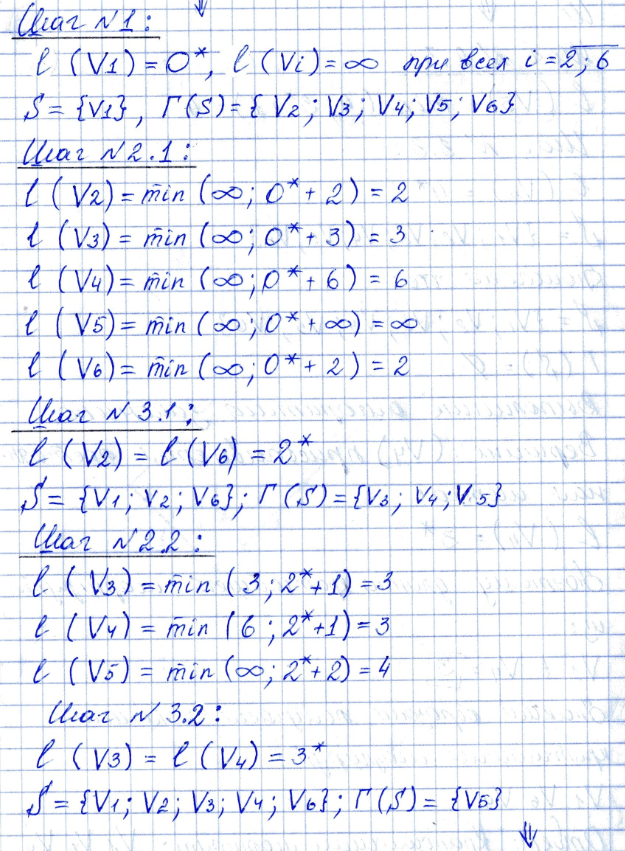 Шаг N1:
l (V1) = 0*, l (Vi) = ∞ при всех i = 2; 6
S = {V1}, Г(S) = { V2; V3; V4; V5; V6}
Шаг N2.1:
l (V2) = min (∞; 0* + 2) = 2
l (V3) = min (∞; 0* + 3) = 3
l (V4) = min (∞; 0* + 6) = 6
l (V5) = min (∞; 0* + ∞) = ∞
l (V6) = min (∞; 0* + 2) = 2
Шаг N 3.1:
l (V2) = l (V6) = 2*
S = {V1; V2; V6}; Г(S) = {V3; V4; V5}
Шаг N2.2:
l (V3) = min (3; 2*+1) = 3
l (V4) = min (6; 2*+1) = 3
l (V5) = min (∞; 2*+2) = 4
Шаг N 3.2:
l (V3) = l (V4) = 3*
S = {V1; V2; V3; V4; V6}; Г(S) = {V5}